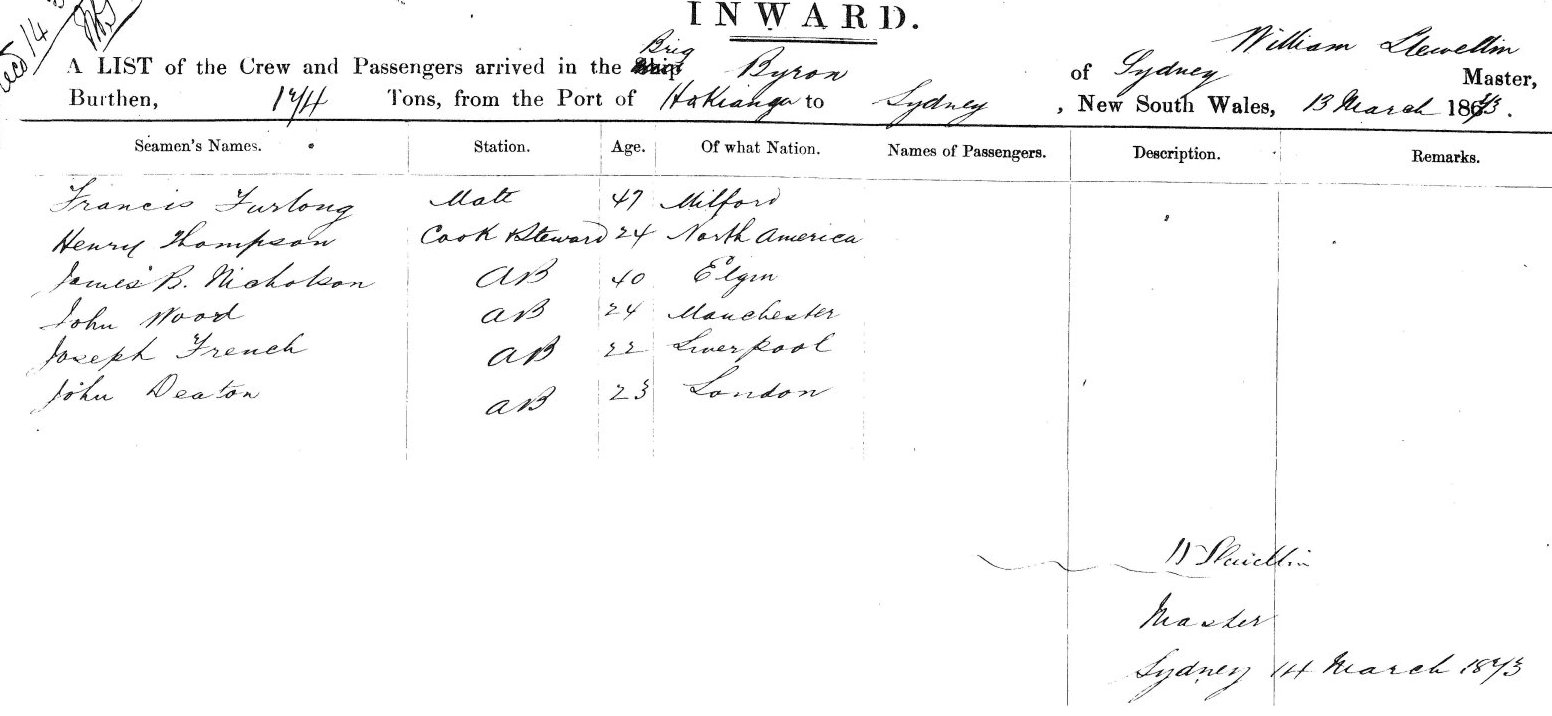 Recd 14
INWARD.
William Llewellin
Brig
A LIST of the Crew and Passengers arrived in the Ship Byron of Sydney Master,
Burthen, 174 Tons, from the Port of Hokianga to Sydney, New South Wales, 13 March 1873.
Seamen's Names. Station. Age. Of what Nation. Names of Passengers. Description. Remarks.
Francis Furlong Mate 47 Milford
Henry Thompson Cook & Steward 24 North America
James B. Nicholson AB 40 Elgin
John Wood AB 24 Manchester
Joseph French AB 22 Liverpool
John Deaton AB 23 London
W Llewellin
Master
Sydney 14 March 1873